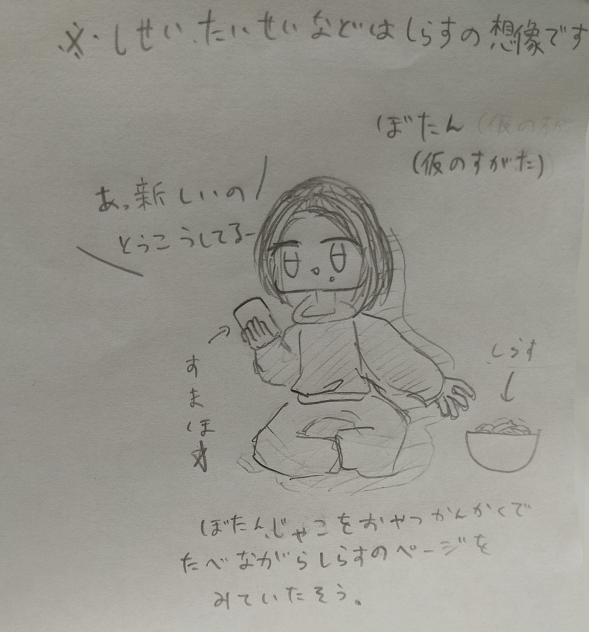 ※・しせい、たいせいなどはしらすの想像です
ぼたん(仮のすが
(仮のすがた)
あっ新しいの
とうこうしてるー
しらす
すまほ
ぼたん、じゃこをおやつかんかくで
たべながらしらすのページを
みていたそう。